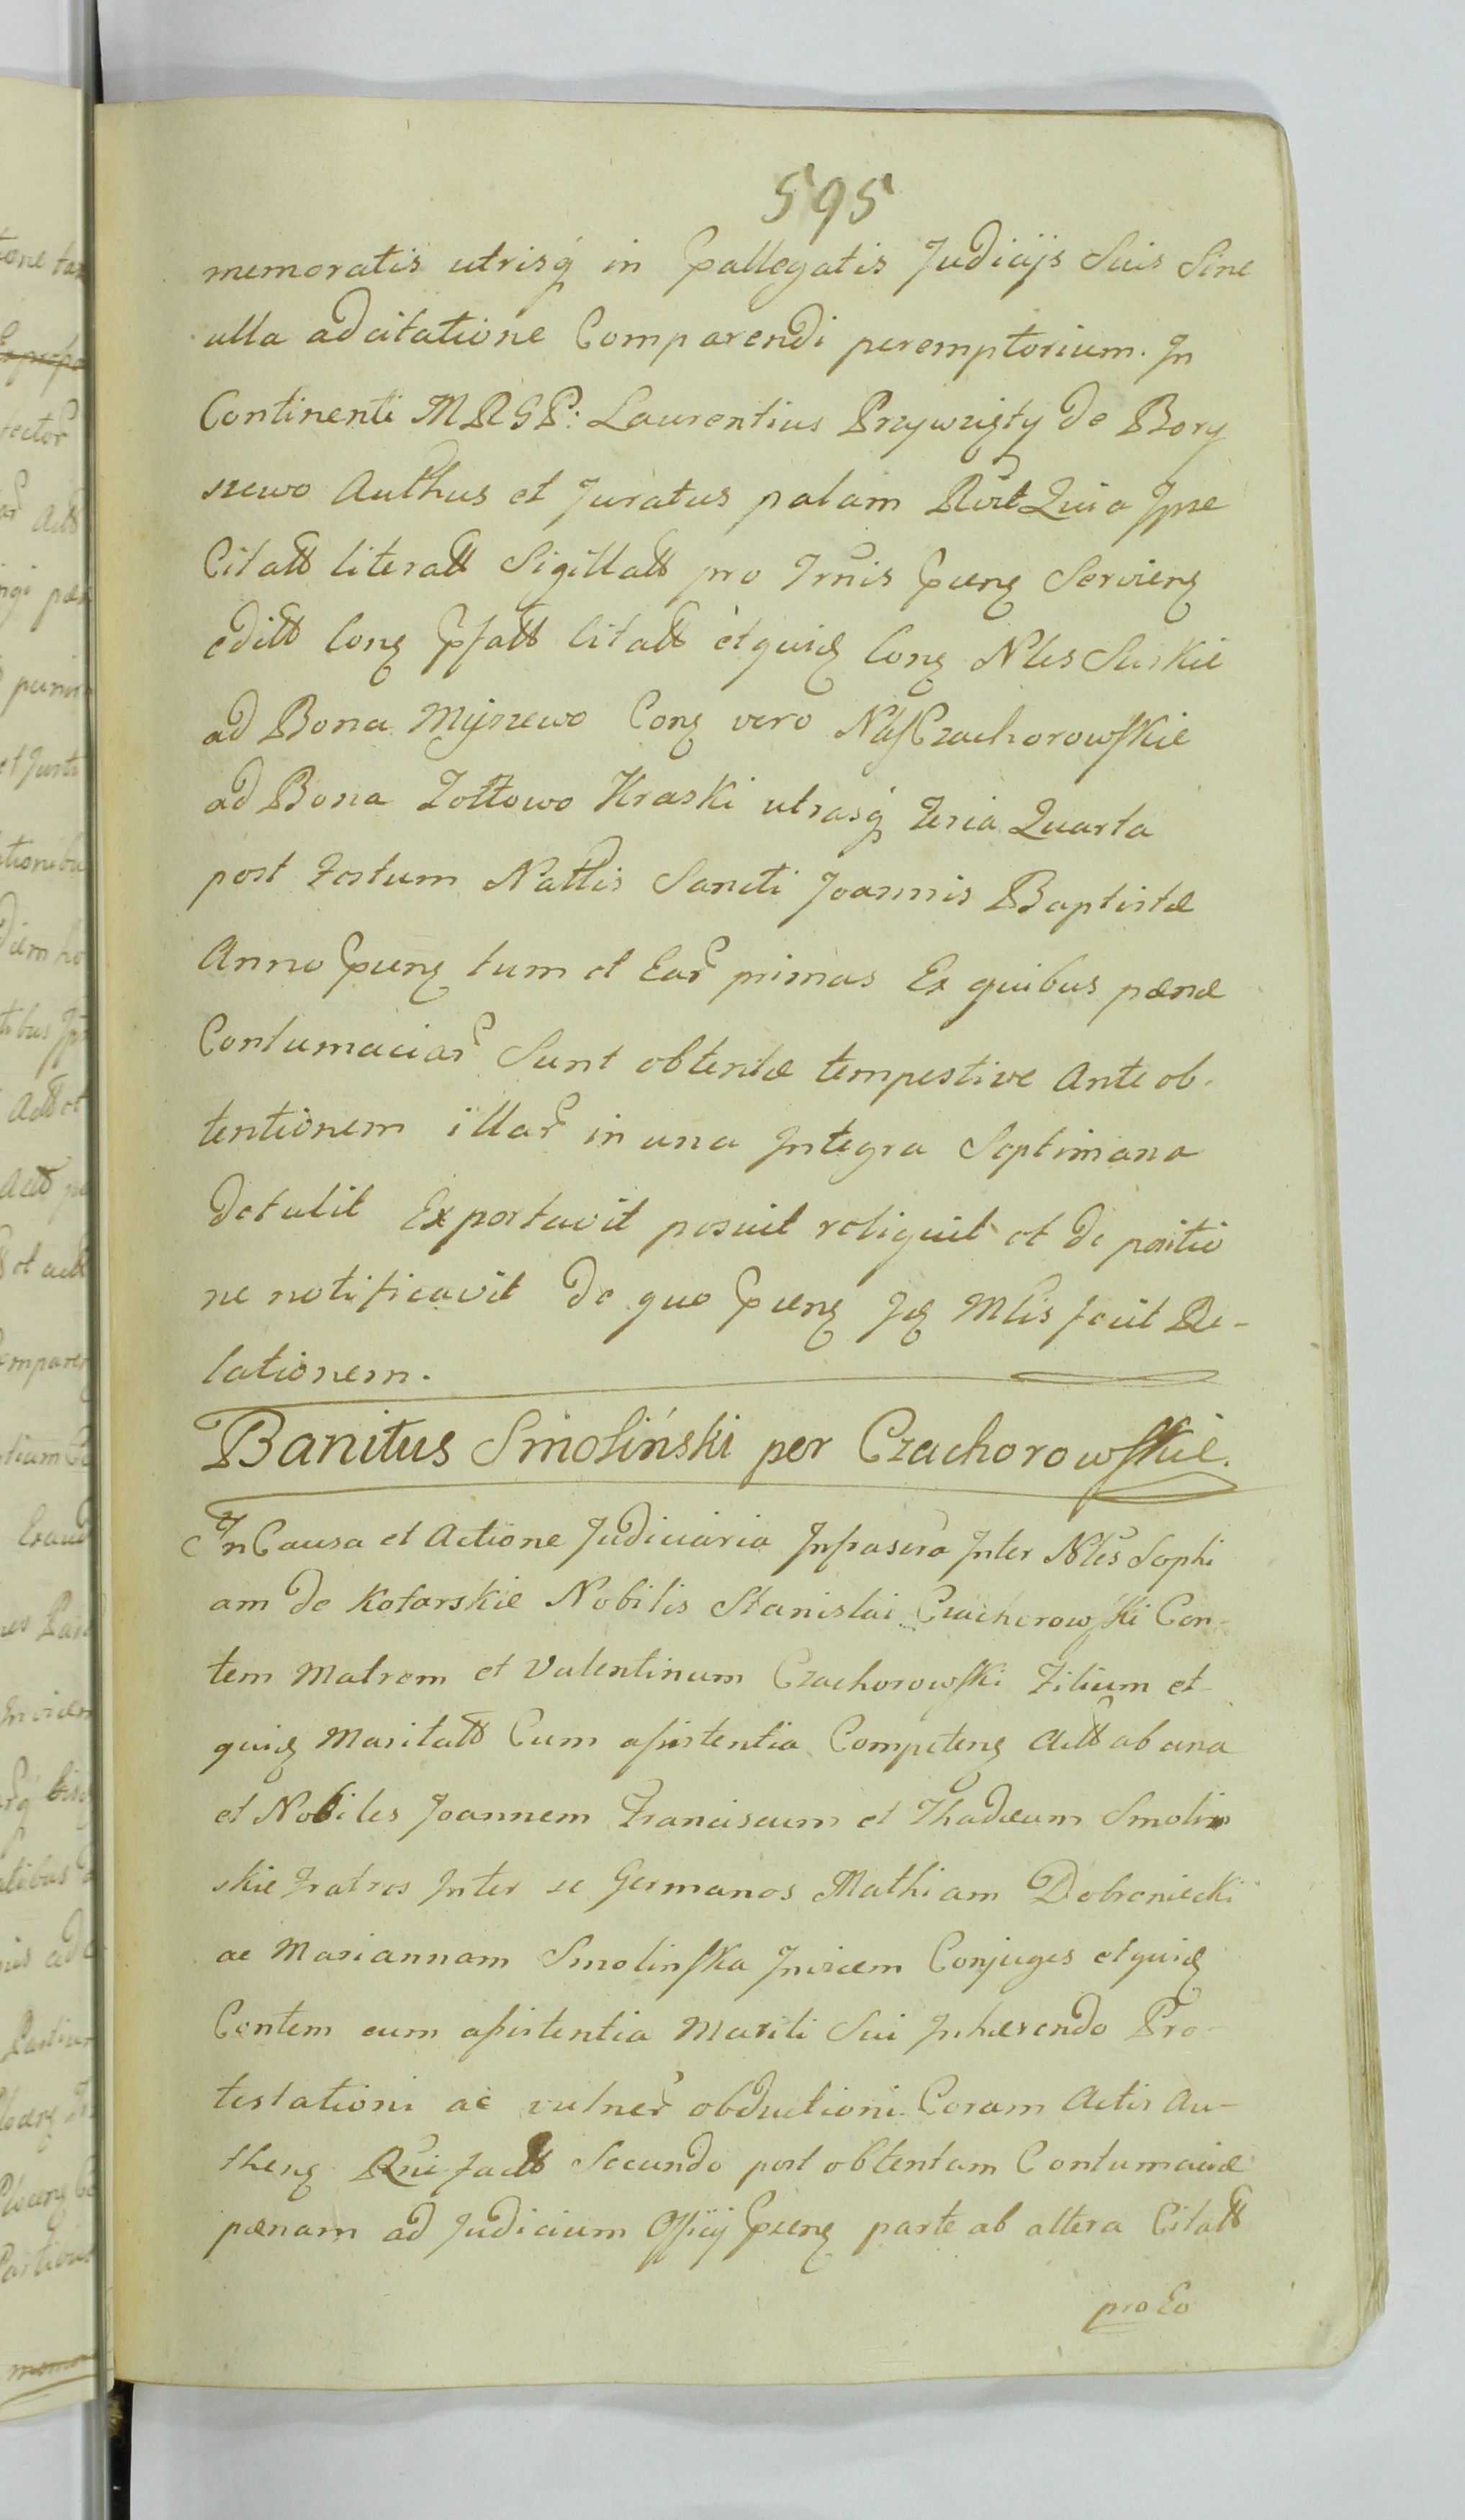 595
memoratis utrisq́ in p̃allegatis Judicijs Suis Sine
ulla adcitatione Comparendi peremptorium. In
Continenti MRGP: Laurentius Przywzięty de Bory
szewo Authus et Juratus palam Rvit Quia Ipse
Citatt literatt Sigillatt pro Trnis p̃nt Servient
editt Cont p̃fatt Citatt et quid Cont Nles Suskie
ad Bona Myszewo Cont vero Nles Czachorowskie
ad Bona Zołtowo Kraski utrasq́ Feria Quarta
post Festum Nattis Sancti Joannis Baptistæ
Anno p̃nt tum et Ear̃ primas Ex quibus pænæ
Contumaciar̃ Sunt obtentæ tempestive Ante ob-
tentionem illar̃ in una Integra Septimana
detulit Exportavit posuit reliquit et de positio
ne notificavit de quo p̃nt Id Mlis fecit Re-
lationem.
Banitus Smoliński per Czachorowskie.
In Causa et Actione Judiciaria Infrascra Inter Nles Sophi
am de Kotarskie Nobilis Stanislai Czachorowski Con-
tem Matrem et Valentinum Czachorowski Filium et
quid Maritatt Cum assistentia Competent Actt ab una
et Nobiles Joannem Franciscum et Thadæum Smolin
skie Fratres Inter se Germanos Mathiam Dobreniecki
ac Mariannam Smolinska Invicem Conjuges et quid
Contem cum assistentia Mariti Sui Inhærendo Pro-
testationi ac vulner̃ obductioni Coram Actis Au-
thent Rni factt Secundo post obtentam Contumaciæ
pænam ad Judicium Officij p̃nt parte ab altera Citatt
pro Eo